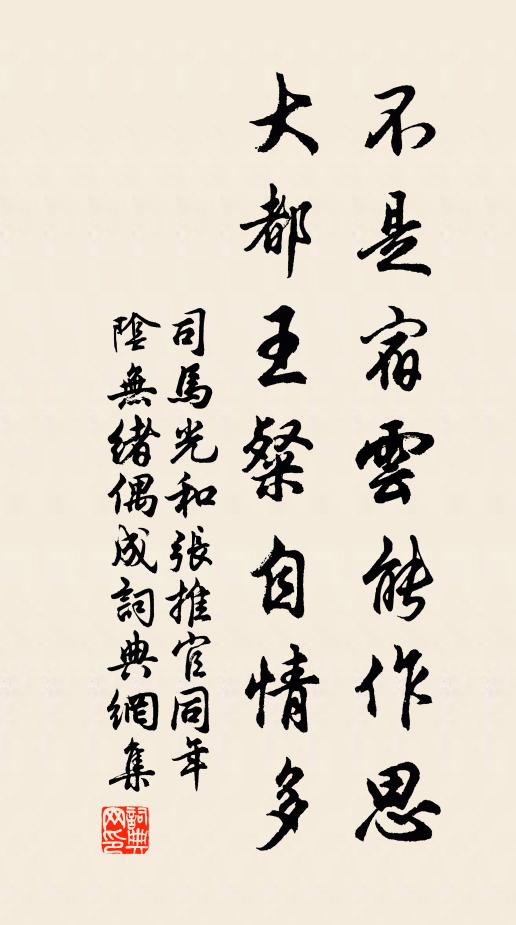 不是宿雲能作思
大都王粲自情多
司馬光和張推官同年
陰無緒偶成詞典網集
詞典
网印